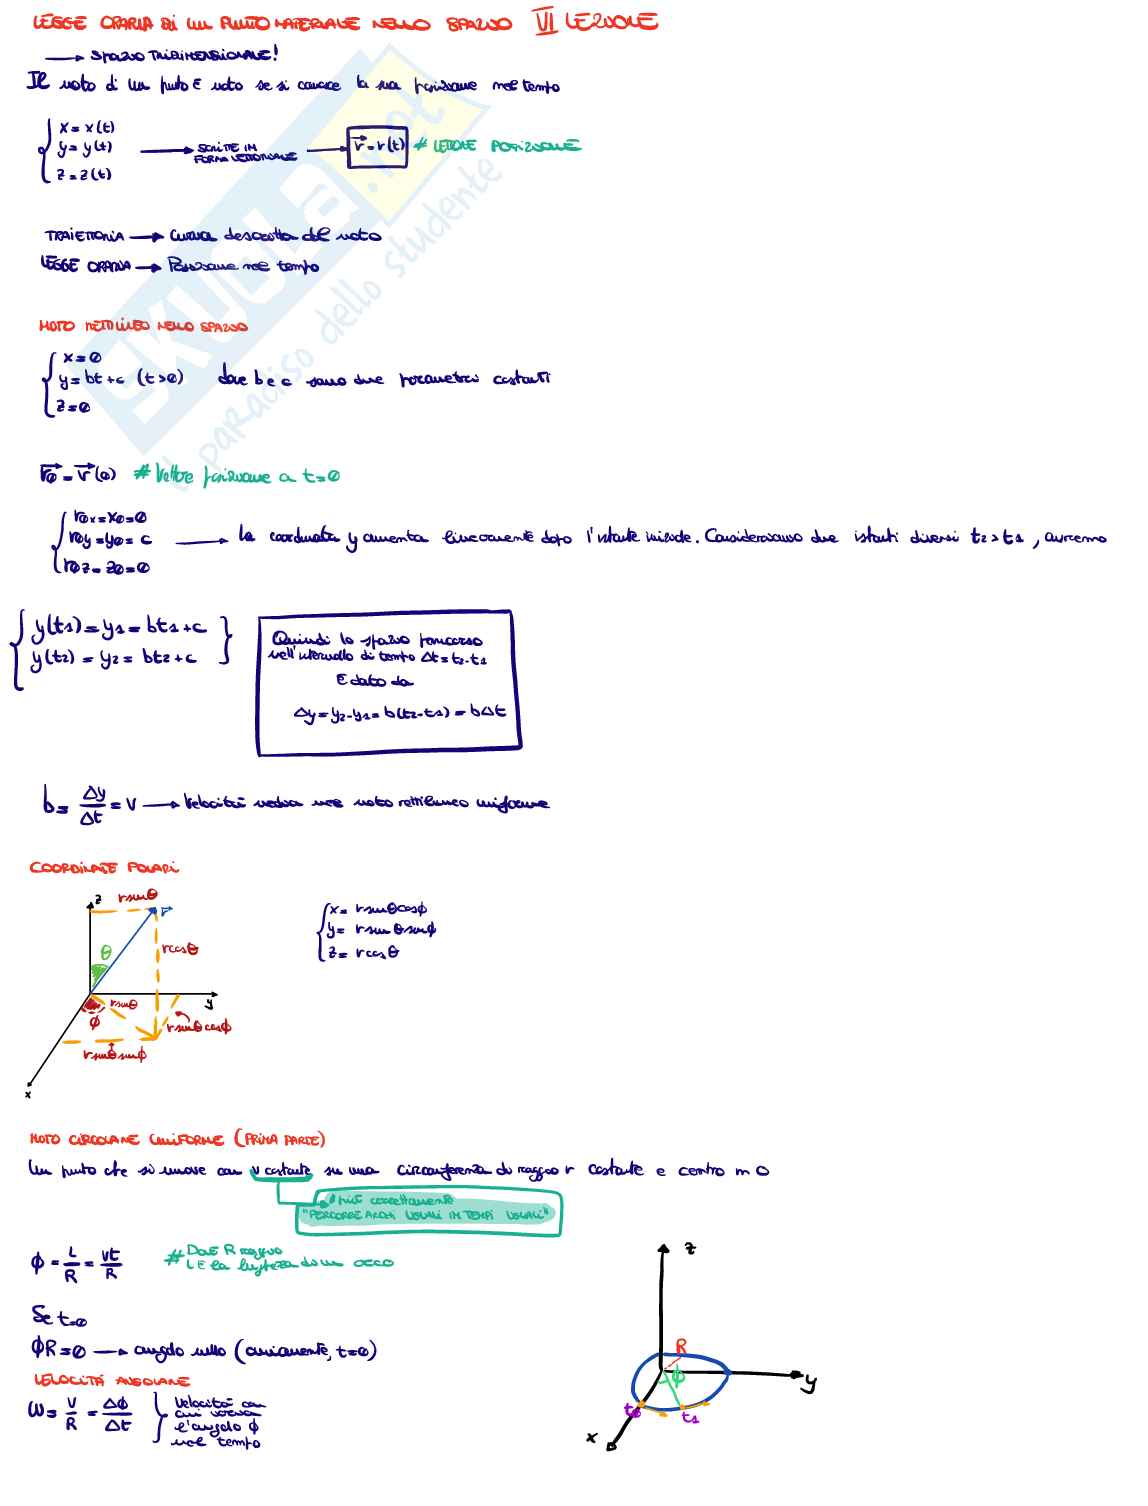 LEGGE ORARIA DI UN PUNTO MATERIALE NELLO SPAZIO VI LEZIONE
→ SPAZIO TRIDIMENSIONALE!
Il moto di un punto È noto se si conosce la sua posizione nel tempo
x = x(t)
y = y(t) → SCRITTE IN FORMA VETTORIALE → r = r(t) # VETTORE POSIZIONE
z = z(t)
TRAIETTORIA → Curva descritta dal moto
LEGGE ORARIA → Posizione nel tempo
MOTO RETTILINEO NELLO SPAZIO
x = 0
y = bt + c (t>0) dove b e c sono due parametri costanti
z = 0
r0 = r(0) # Vettore posizione a t=0
r0x = x0 = 0
r0y = y0 = c → la coordinata y aumenta linearmente dopo l'istante iniziale. Consideriamo due istanti diversi t2 > t1, avremo
r0z = z0 = 0
y(t1) = y1 = bt1 + c
y(t2) = y2 = bt2 + c
Quindi lo spazio percorso
nell'intervallo di tempo Δt = t2 - t1
È dato da
Δy = y2 - y1 = b(t2 - t1) = bΔt
b = Δy/Δt = v → Velocità media nel moto rettilineo uniforme
COORDINATE POLARI
z r sinθ r
x = r sinθ cosϕ
y = r sinθ sinϕ
z = r cosθ
θ r cosθ
r sinθ y
ϕ r sinθ cosϕ
r sinθ sinϕ
x
MOTO CIRCOLARE UNIFORME (PRIMA PARTE)
Un punto che si muove con v costante su una circonferenza di raggio r costante e centro in O
più correttamente
"PERCORRE ARCHI UGUALI IN TEMPI UGUALI"
ϕ = L/R = vt/R # DOVE R raggio
L È la lunghezza di un arco
Se t=0
ϕR = 0 → angolo nullo (ovviamente, t=0)
VELOCITÀ ANGOLARE
ω = v/R = Δϕ/Δt
Velocità con
cui varia
l'angolo ϕ
nel tempo
z
R
ϕ
y
t0 t1
x
SKUOLA.net
il paradiso dello studente